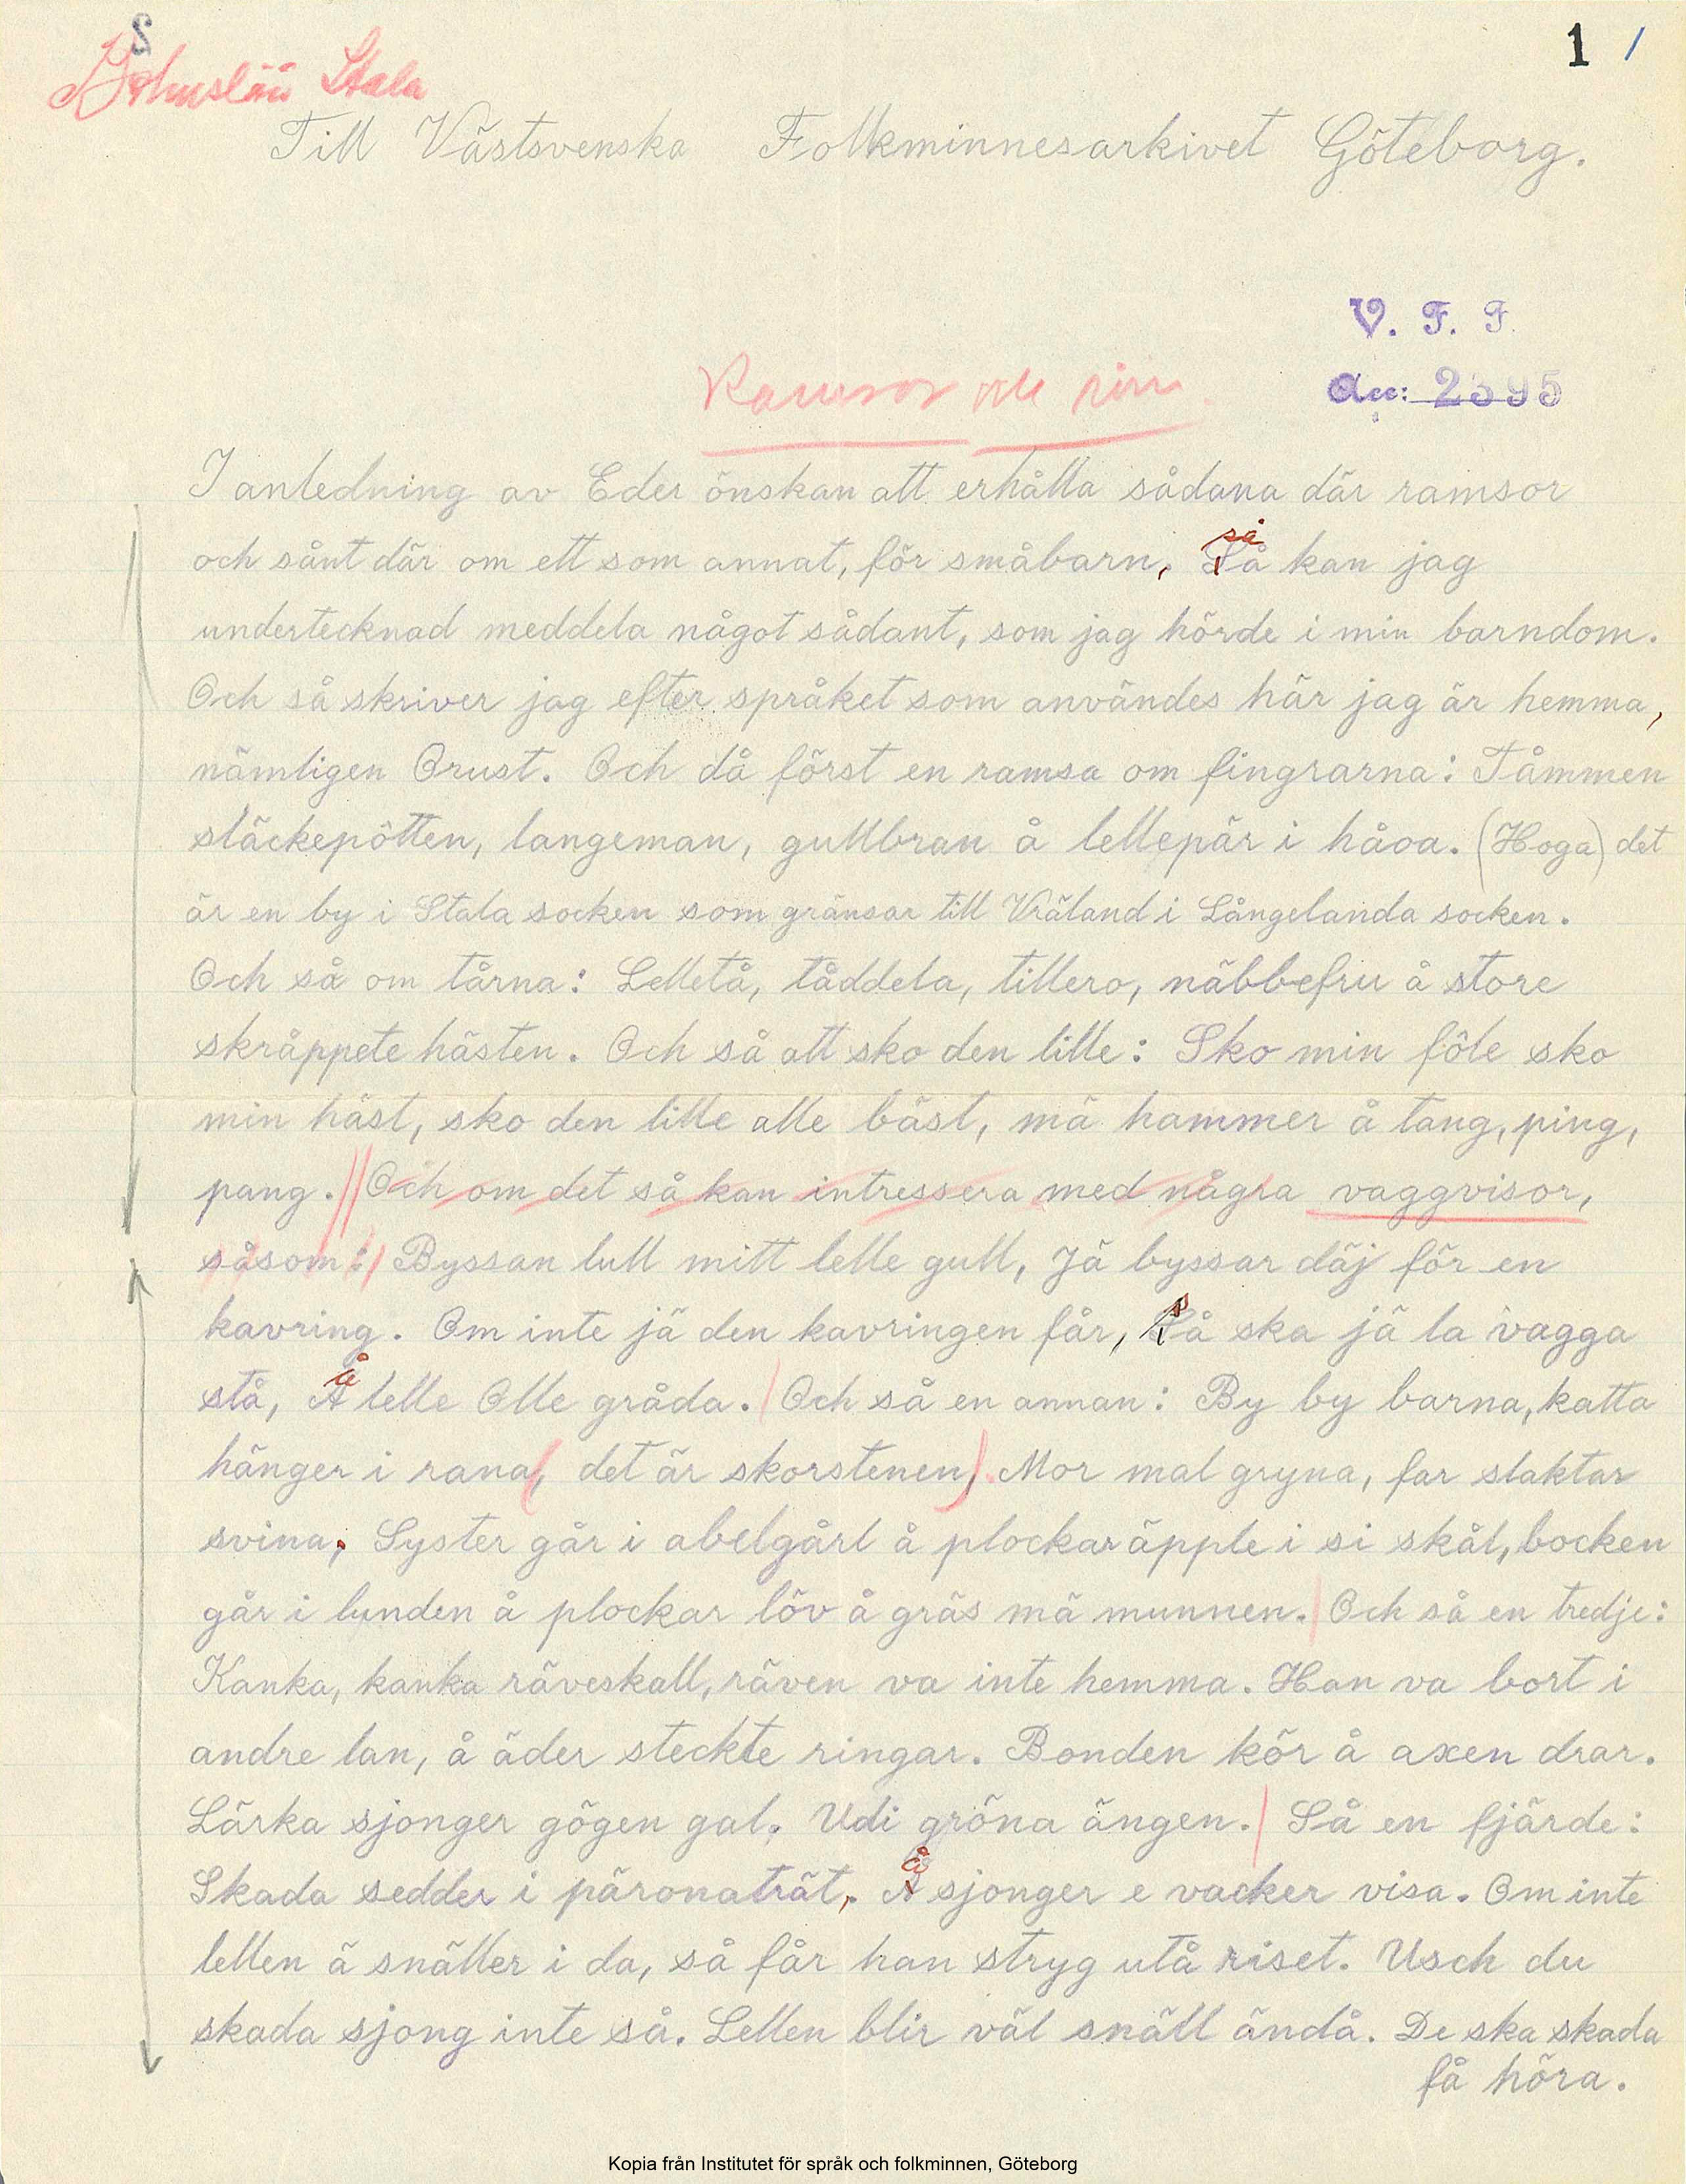 S
1 /
Bohuslän Stala
Till Västsvenska Folkminnesarkivet Göteborg.
V. F. F.
Acc: 2395
Ramsor och rim.
I anledning av Eder önskan att erhålla sådana där ramsor
och sånt där om ett som annat, för småbarn, så kan jag
undertecknad meddela något sådant, som jag hörde i min barndom.
Och så skriver jag efter språket som användes här jag är hemma,
nämligen Orust. Och då först en ramsa om fingrarna: Tåmmen
släckepötten, langeman, gullbran å lellepär i håoa. (Hoga) det
är en by i Stala socken som gränsar till Vräland i Långelanda socken.
Och så om tårna: Lelletå, tåddela, tillero, näbbefru å store
skråppete hästen. Och så att sko den lille: Sko min föle sko
min häst, sko den lille alle bäst, mä hammer å tang, ping,
pang. // Och om det så kan intressera med några vaggvisor,
såsom: Byssan lull mitt lelle gull, Jä byssar däj för en
kavring. Om inte jä den kavringen får, så ska jä la vagga
stå, å lelle Olle gråda. / Och så en annan: By by barna, katta
hänger i rana, (det är skorstenen). Mor mal gryna, far slaktar
svina, Syster går i abelgårl å plockar äpple i si skål, bocken
går i lunden å plockar löv å gräs mä munnen. / Och så en tredje:
Kanka, kanka räveskall, räven va inte hemma. Han va bort i
andre lan, å äder steckte ringar. Bonden kör å axen drar.
Lärka sjonger gögen gal. Udi gröna ängen. / Så en fjärde:
Skada sedder i päronaträt, å sjonger e vacker visa. Om inte
lellen ä snäller i da, så får han stryg utå riset. Usch du
skada sjong inte så. Lellen blir väl snäll ändå. De ska skada
få höra.
Kopia från Institutet för språk och folkminnen, Göteborg